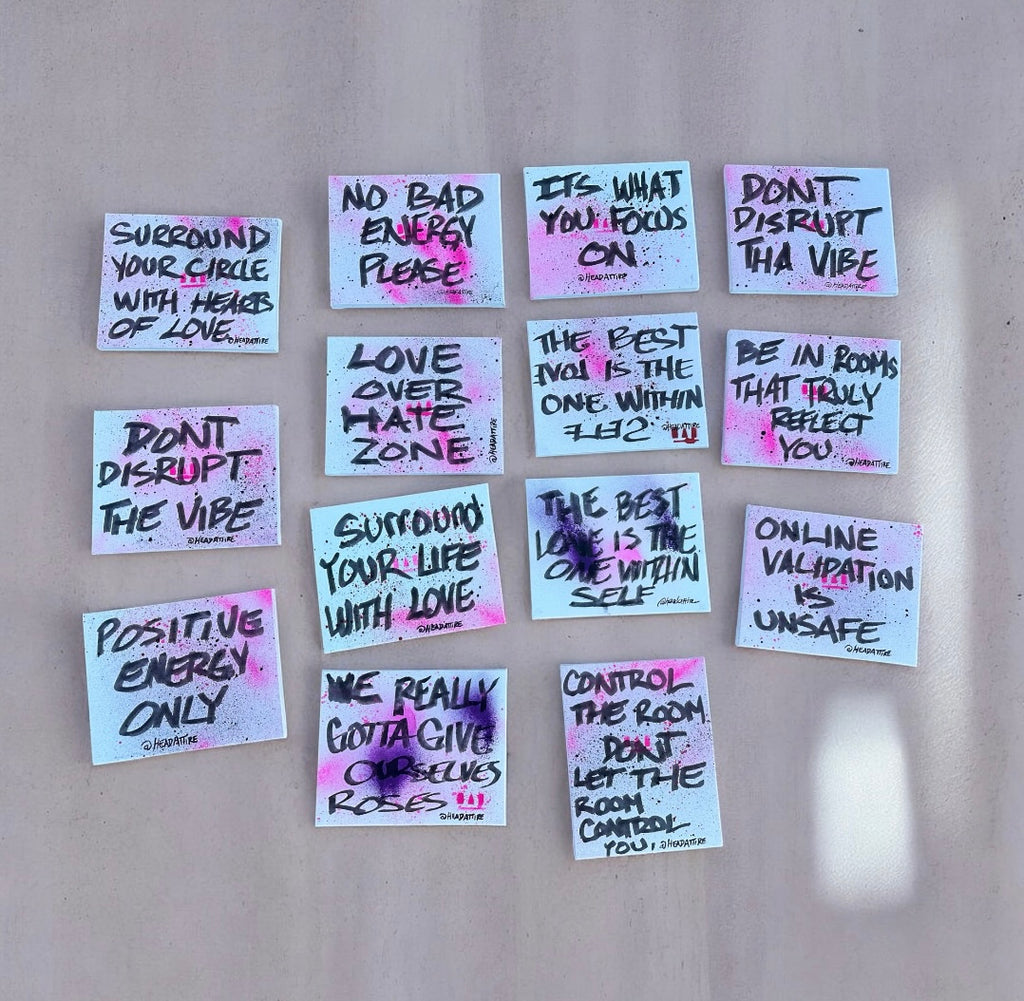 SURROUND
YOUR CIRCLE
WITH HEARTS
OF LOVE
@HEADATTIRE
DONT
DISRUPT
THE VIBE
@HEADATTIRE
POSITIVE
ENERGY
ONLY
@HEADATTIRE
NO BAD
ENERGY
PLEASE
@HEADATTIRE
LOVE
OVER
HATE
ZONE
@HEADATTIRE
SURROUND
YOUR LIFE
WITH LOVE
@HEADATTIRE
WE REALLY
GOTTA GIVE
OURSELVES
ROSES
@HEADATTIRE
ITS WHAT
YOU FOCUS
ON
@HEADATTIRE
THE BEST
LOVE IS THE
ONE WITHIN
SELF
@HEADATTIRE
THE BEST
LOVE IS THE
ONE WITHIN
SELF
@HEADATTIRE
CONTROL
THE ROOM
DON'T
LET THE
ROOM
CONTROL
YOU. @HEADATTIRE
DONT
DISRUPT
THA VIBE
@HEADATTIRE
BE IN ROOMS
THAT TRULY
REFLECT
YOU
@HEADATTIRE
ONLINE
VALIDATION
IS
UNSAFE
@HEADATTIRE